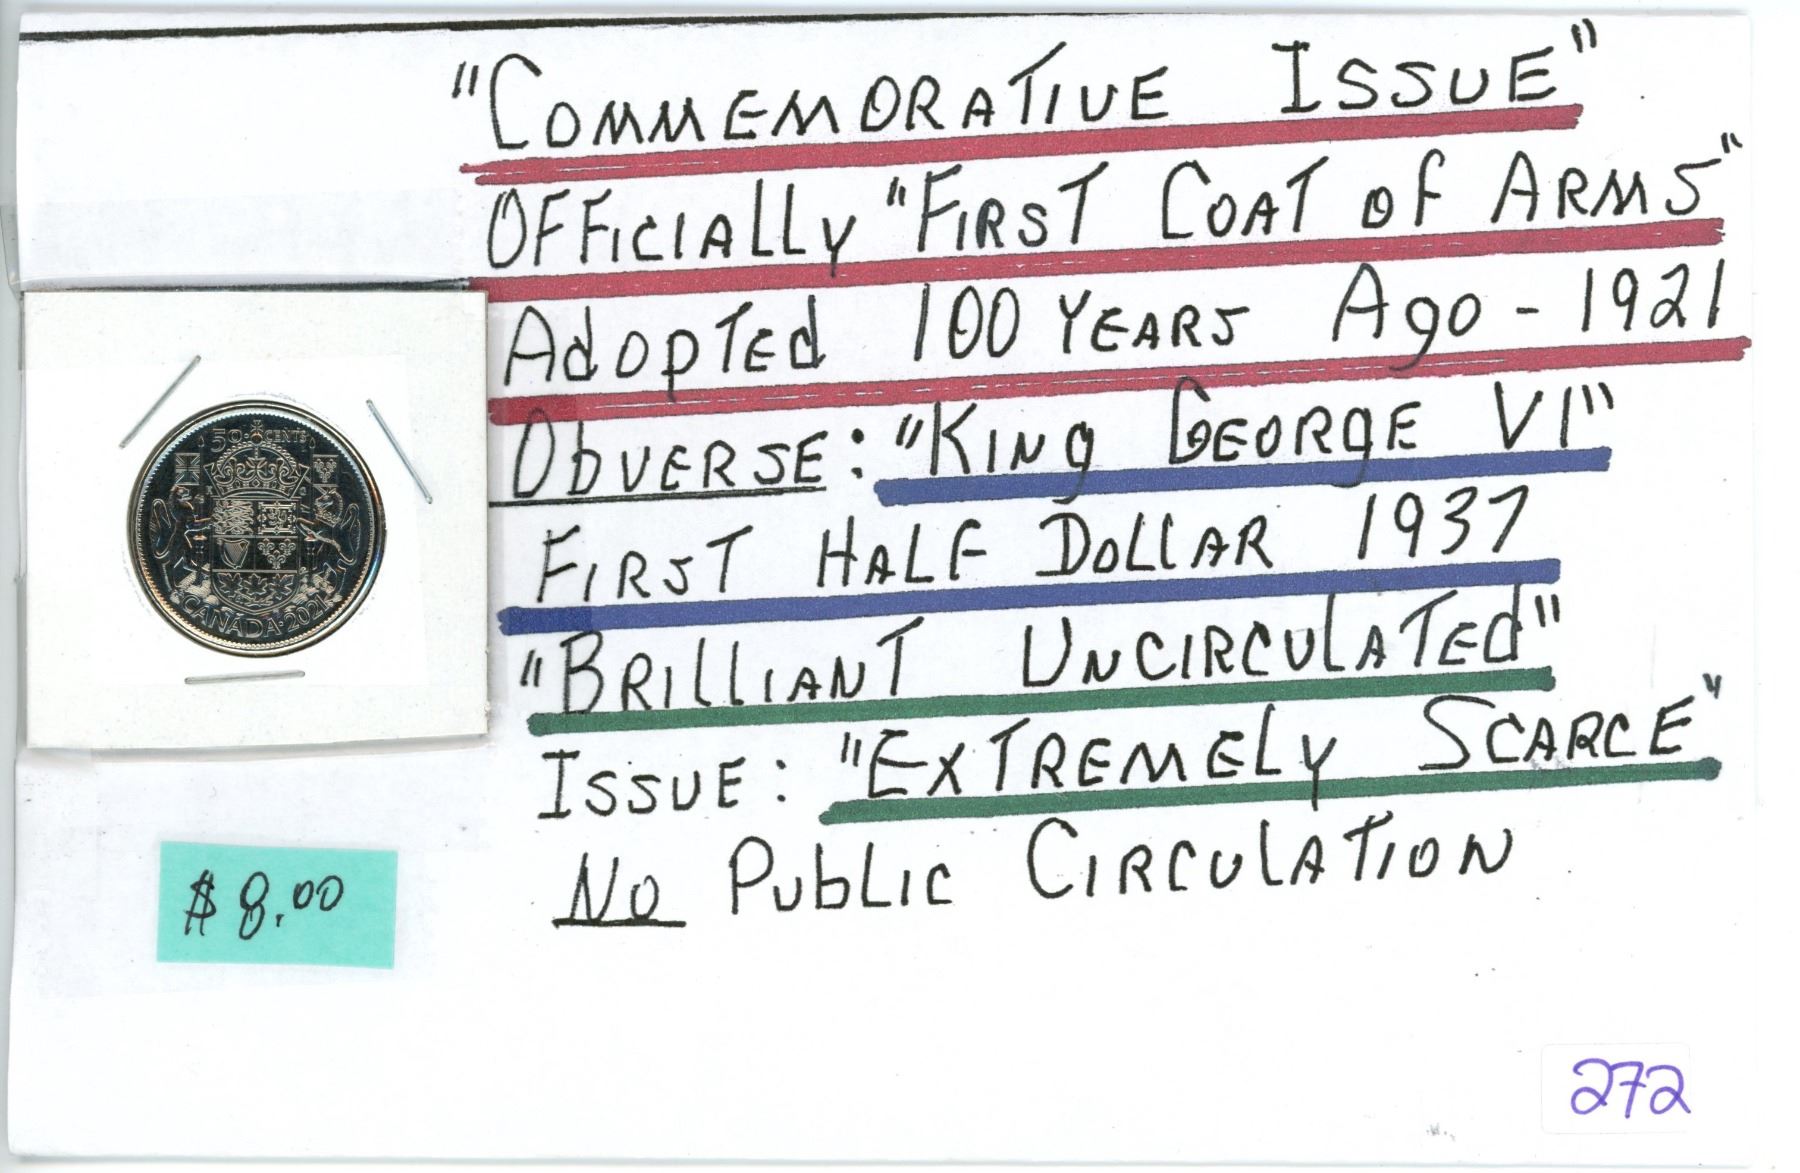 "COMMEMORATIVE ISSUE"
OFFICIALLY "FIRST COAT OF ARMS"
ADOPTED 100 YEARS AGO - 1921
OBVERSE: "KING GEORGE VI"
FIRST HALF DOLLAR 1937
"BRILLIANT UNCIRCULATED"
ISSUE: "EXTREMELY SCARCE"
NO PUBLIC CIRCULATION
50 CENTS
CANADA · 2021
$8.00
272